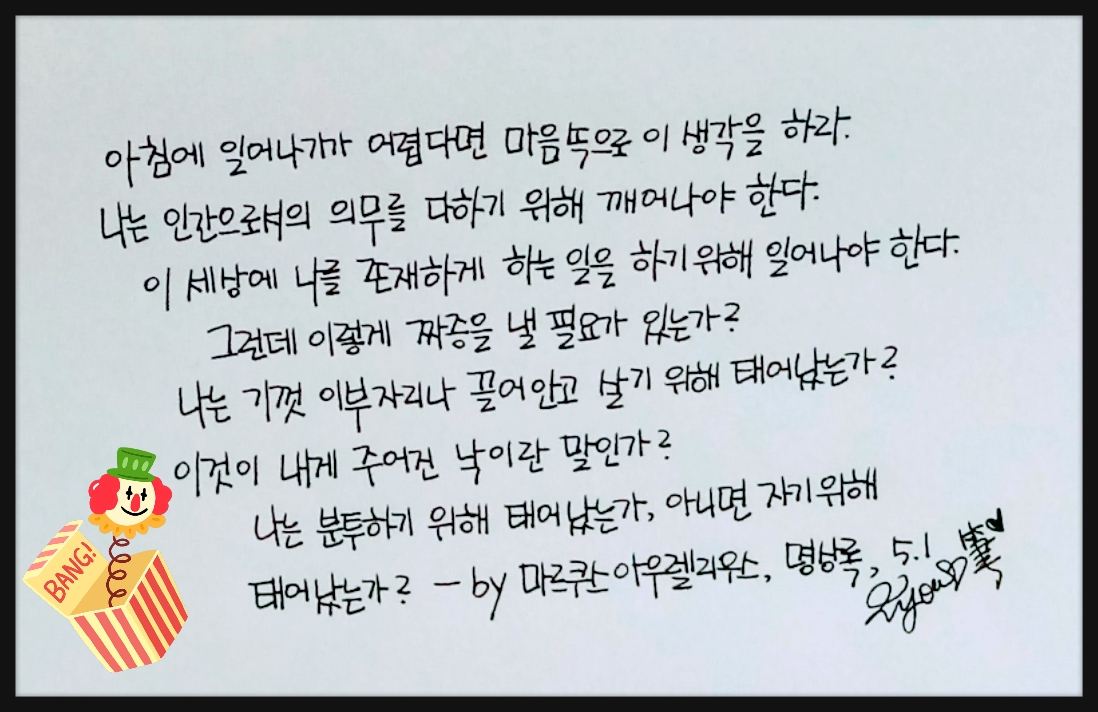 아침에 일어나기가 어렵다면 마음뚝으로 이 생각을 하라.
나는 인간으로서의 의무를 다하기 위해 깨어나야 한다.
이 세상에 나를 존재하게 하는 일을 하기위해 일어나야 한다.
그런데 이렇게 짜증을 낼 필요가 있는가?
나는 기껏 이부자리나 끌어안고 살기 위해 태어났는가?
이것이 내게 주어진 낙이란 말인가?
나는 분투하기 위해 태어났는가, 아니면 자기위해
태어났는가? - by 마르쿠스아우렐리우스, 명상록, 5.1
BANG!